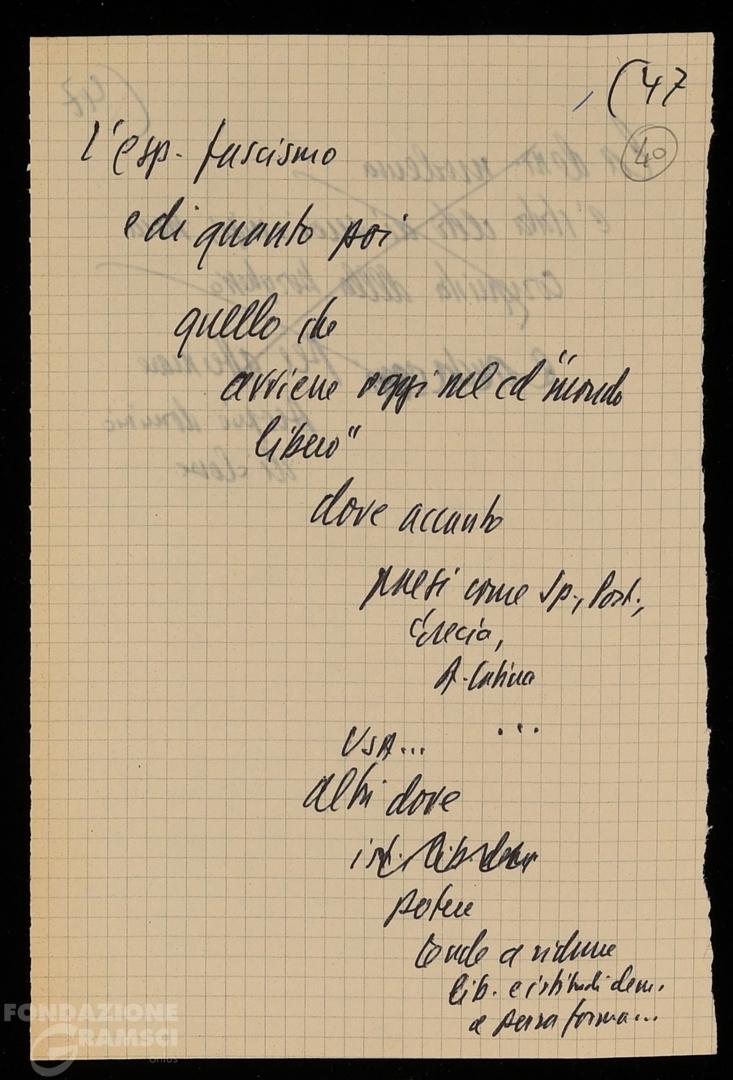 (47
40
l'esp. fascismo
e di quanto poi
quello che
avviene oggi nel cd "mondo
libero"
dove accanto
paesi come Sp., Port.,
Grecia,
A. Latina
...
USA...
altri dove
ist. lib. dem
potere
tende a ridurre
lib. e istituti dem.
a pura forma...
FONDAZIONE
GRAMSCI
onlus